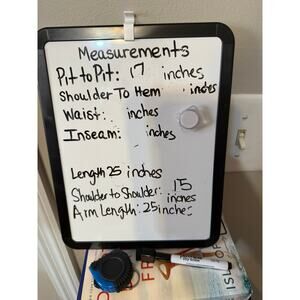 Measurements
Pit to Pit: 17 inches
Shoulder To Hem inches
Waist: inches
Inseam: inches
Length 25 inches
Shoulder to Shoulder: 15 inches
Arm Length: 25 inches